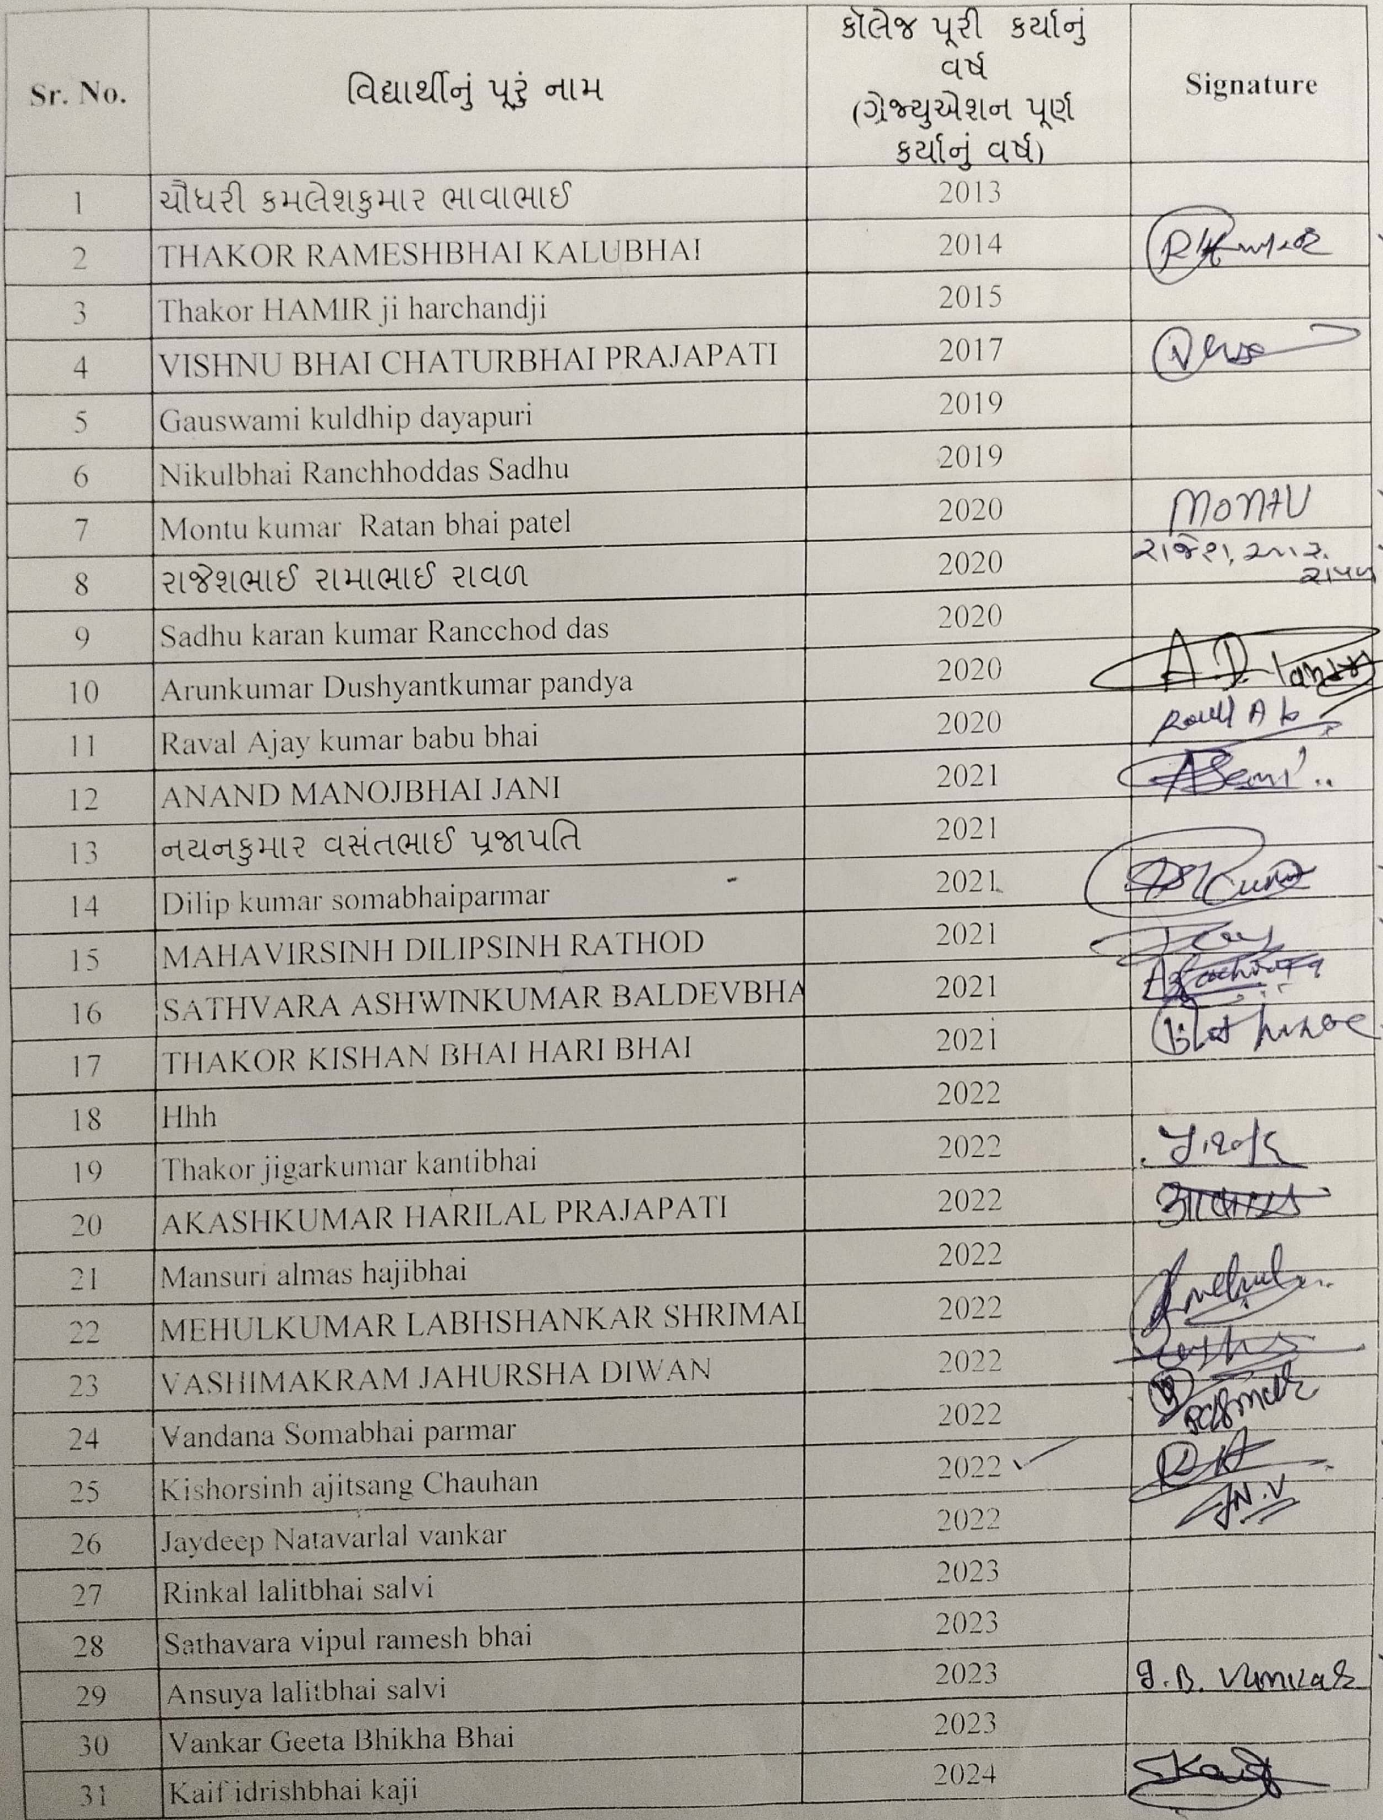 Sr. No. વિદ્યાર્થીનું પૂરું નામ કૉલેજ પૂરી કર્યાનું વર્ષ (ગ્રેજ્યુએશન પૂર્ણ કર્યાનું વર્ષ) Signature
1 ચૌધરી કમલેશકુમાર ભાવાભાઈ 2013
2 THAKOR RAMESHBHAI KALUBHAI 2014
3 Thakor HAMIR ji harchandji 2015
4 VISHNU BHAI CHATURBHAI PRAJAPATI 2017
5 Gauswami kuldhip dayapuri 2019
6 Nikulbhai Ranchhoddas Sadhu 2019
7 Montu kumar Ratan bhai patel 2020 MONTU
8 રાજેશભાઈ રામાભાઈ રાવળ 2020 રાજેશ
9 Sadhu karan kumar Rancchod das 2020
10 Arunkumar Dushyantkumar pandya 2020
11 Raval Ajay kumar babu bhai 2020
12 ANAND MANOJBHAI JANI 2021
13 નયનકુમાર વસંતભાઈ પ્રજાપતિ 2021
14 Dilip kumar somabhaiparmar 2021
15 MAHAVIRSINH DILIPSINH RATHOD 2021
16 SATHVARA ASHWINKUMAR BALDEVBHA 2021
17 THAKOR KISHAN BHAI HARI BHAI 2021
18 Hhh 2022
19 Thakor jigarkumar kantibhai 2022
20 AKASHKUMAR HARILAL PRAJAPATI 2022
21 Mansuri almas hajibhai 2022
22 MEHULKUMAR LABHSHANKAR SHRIMAL 2022
23 VASHIMAKRAM JAHURSHA DIWAN 2022
24 Vandana Somabhai parmar 2022
25 Kishorsinh ajitsang Chauhan 2022
26 Jaydeep Natavarlal vankar 2022 J.N.V
27 Rinkal lalitbhai salvi 2023
28 Sathavara vipul ramesh bhai 2023
29 Ansuya lalitbhai salvi 2023
30 Vankar Geeta Bhikha Bhai 2023
31 Kaif idrishbhai kaji 2024